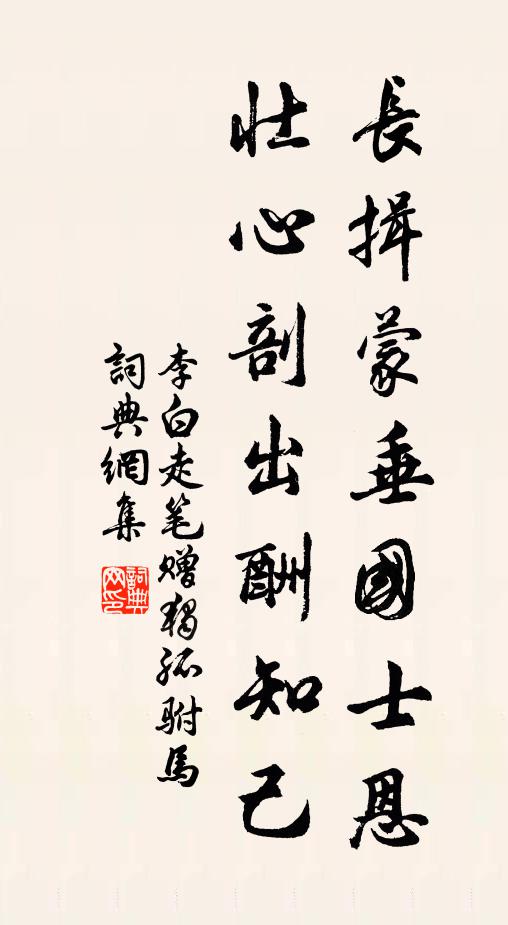 長揖蒙垂國士恩
壯心剖出酬知己
李白走笔贈獨孤駙馬
詞典網集
詞典網印